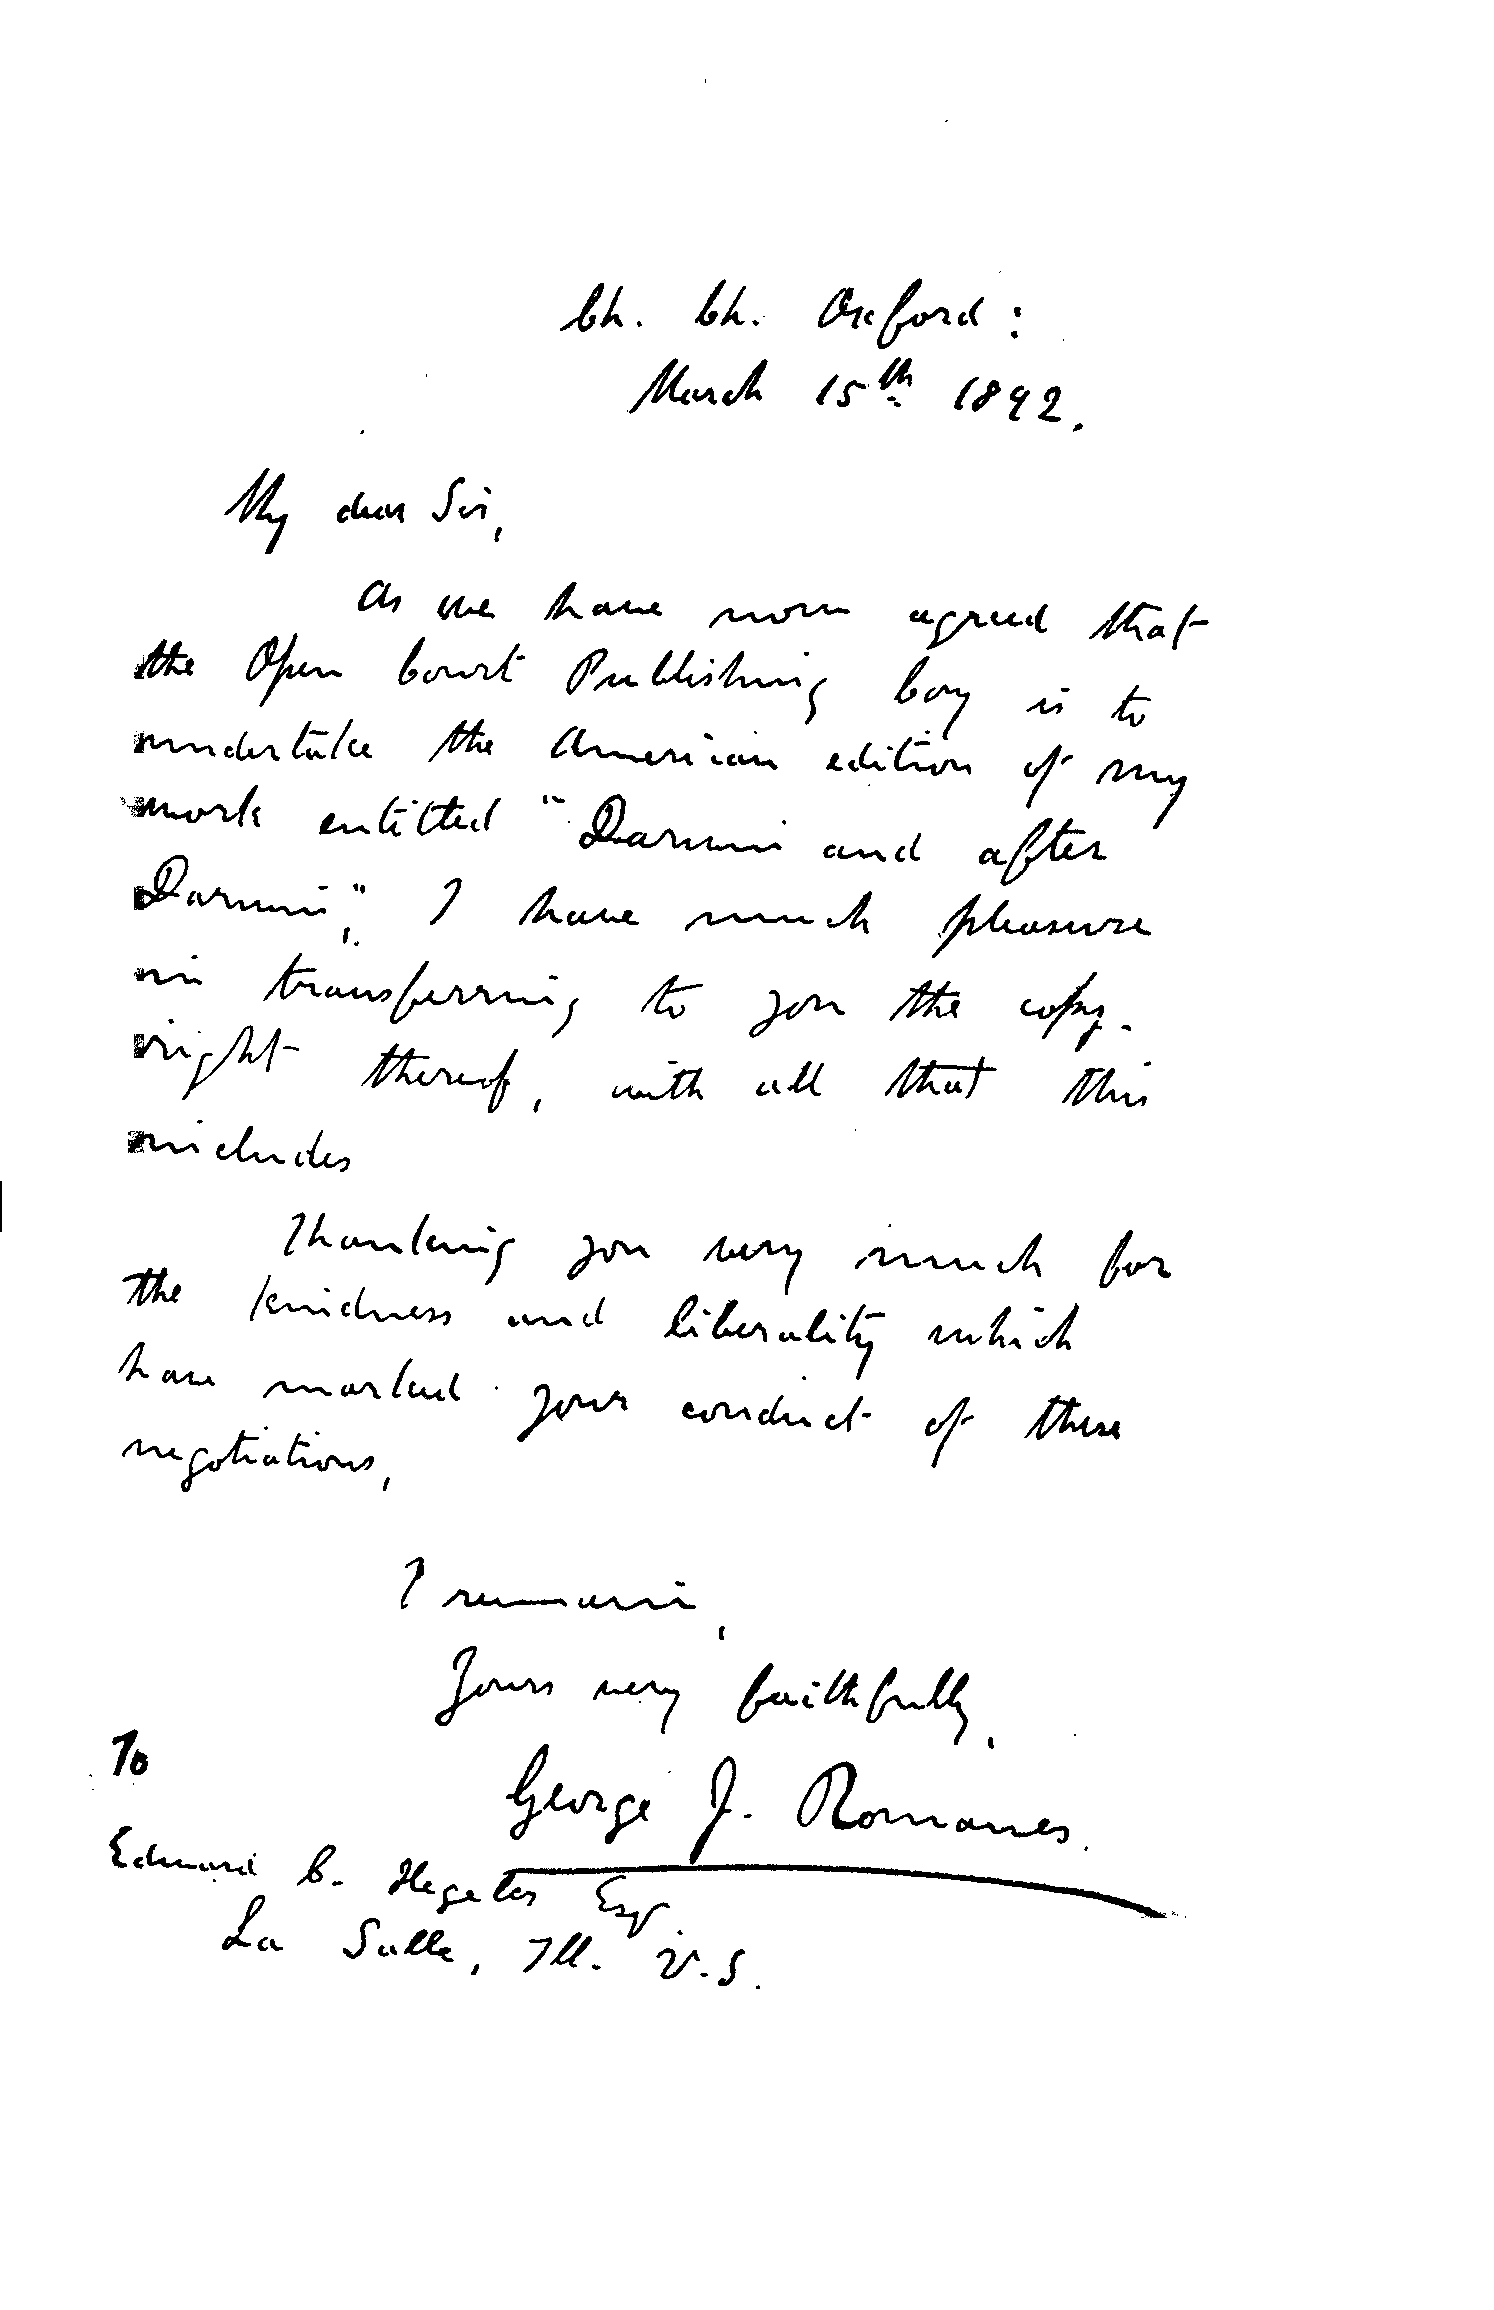 Ch. Ch. Oxford:
March 15th 1892.
My dear Sir,
As we have now agreed that
the Open Court Publishing Coy is to
undertake the American edition of my
work entitled "Darwin and after
Darwin", I have much pleasure
in transferring to you the copy-
right thereof, with all that this
includes
Thanking you very much for
the kindness and liberality which
have marked your conduct of these
negotiations,
I remain,
Yours very faithfully,
George J. Romanes.
To
Edward C. Hegeler Esqr.
La Salle, Ill. U.S.